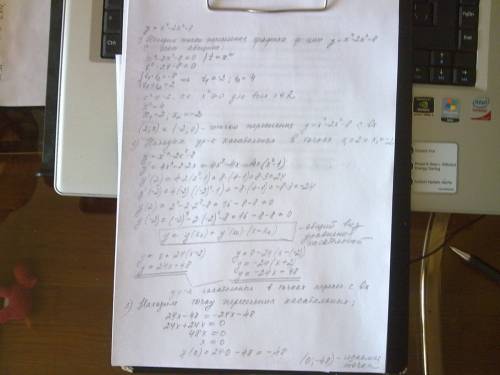 y = x⁴-2x²-8
1) Находим точки пересечения графика ф-ции y = x⁴-2x²-8
с осью абсцисс.
x⁴-2x²-8=0
t²-2t-8=0
x²=4
(2;0) и (-2;0) - точки пересечения y=x⁴-2x²-8 с
2) Находим ур-е касательной в точках x₁=2 и x₂=-2
y=x⁴-2x²-8
y'(2) = 4·2(2²-1) = 8·(4-1) = 8·3=24
y'(-2) = 4·(-2)((-2)²-1) = -8·(4-1) = -8·3=-24
y(2) = 2⁴-2·2²-8 = 16-8-8=0
y(-2) = (-2)⁴-2(-2)²-8 = 16-8-8=0
y = y(x₀) + y'(x₀)·(x-x₀) - общий вид
уравнения
касательной
y=0+24(x-2)
y=24x-48
y=0-24(x-(-2))
y=-24(x+2)
y=-24x-48
ур-я касательных в точках перес. с
3) Находим точку пересечения касательных:
24x-48=-24x-48
24x+24x=0
48x=0
x=0
y(0)=24·0-48=-48
(0;-48) - искомая
точка